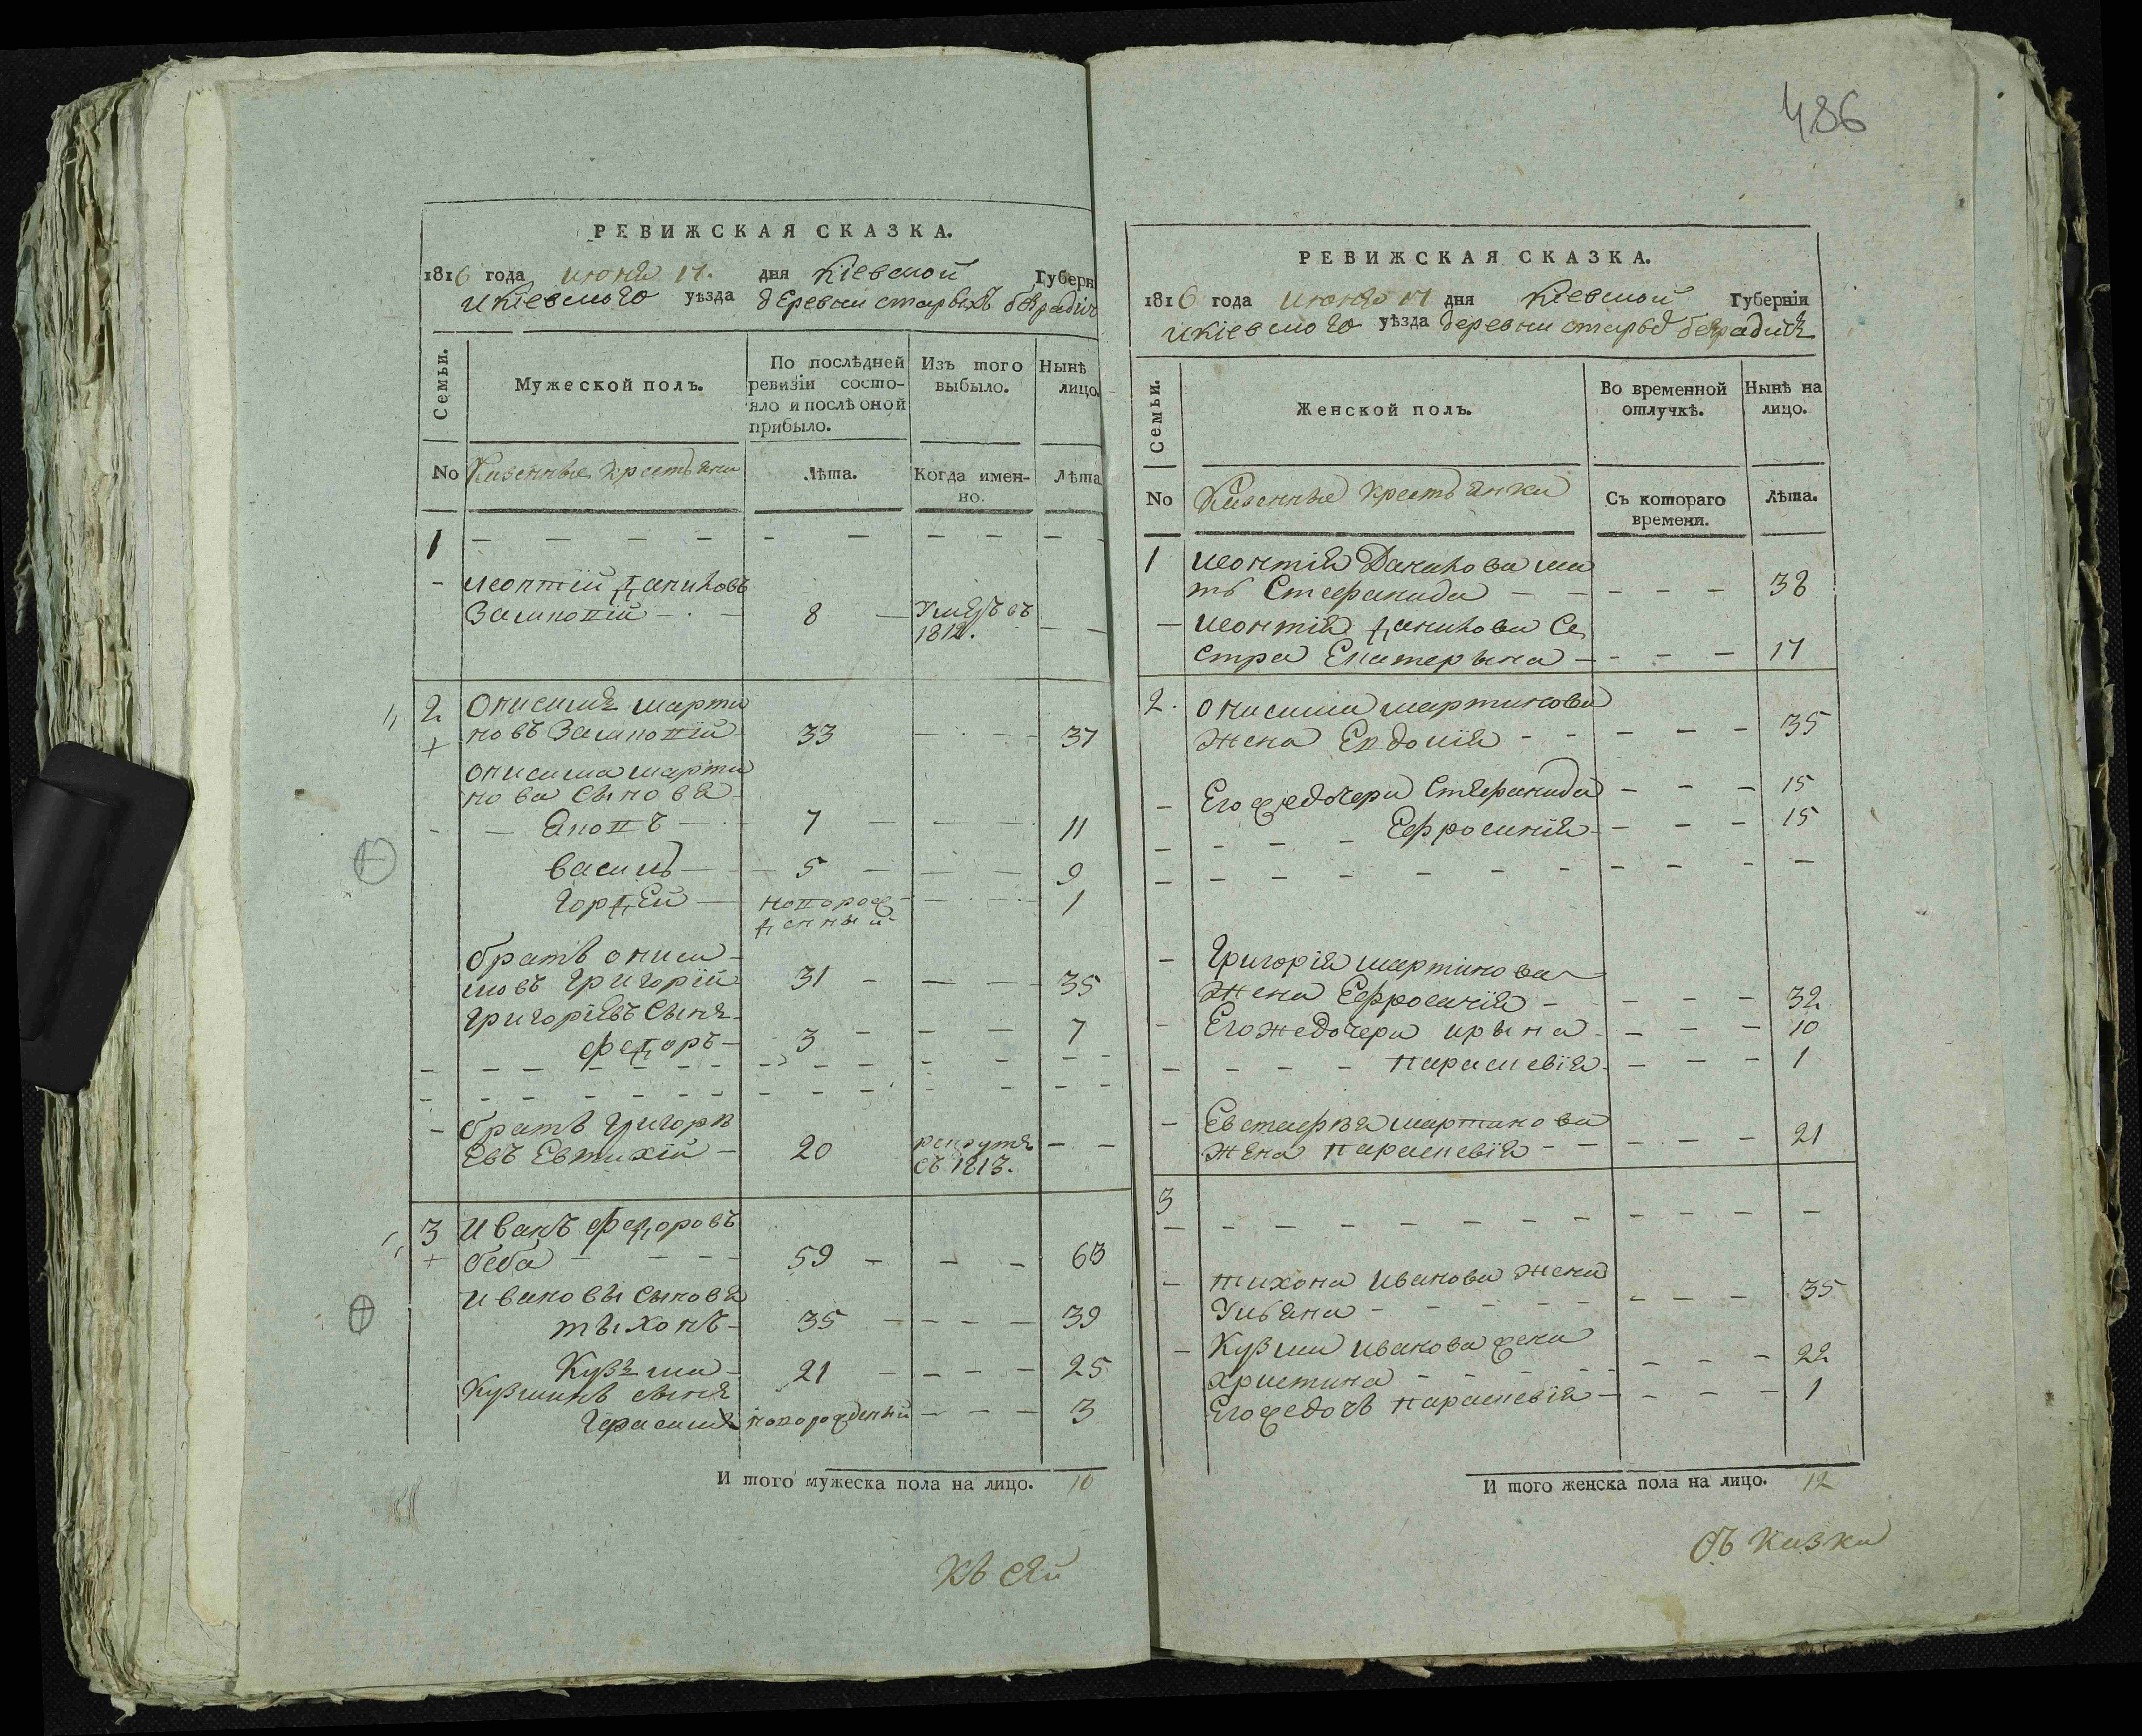 486
РЕВИЖСКАЯ СКАЗКА.
1816 года июня 17. дня Кіевской Губерн
и Кіевского уѣзда деревни старыхъ безрадич
Семьи.
Мужеской полъ.
По послѣдней ревизіи состо-
яло и послѣ оной
прибыло.
Изъ того
выбыло.
Нынѣ
лицо.
No Казенные крестьяни
Лѣта.
Когда имен-
но.
Лѣта
1 — — — — — — — — — —
- Леонтій Даниловъ
8 — Умеръ въ
1812. — —
2 Онисимъ Марти
новъ 33 — - — 37
Онисима Марти
нова Сыновя
- — — 7 — — — 11
Василь — 5 — — — 9
Гордей — новорож-
денный — 1
братъ Ониси-
мовъ Григорій 31 - — — 35
Григоріевъ Сынъ
Федоръ — 3 - — — 7
- братъ Григорь
евъ Евтихій — 20 рекрутъ
съ 1813. — —
3 Иванъ Федоровъ
беба — — — 59 - - - 63
Ивановы Сыновя
Тыхонъ - 35 - - - - 39
Кузьма - 21 - - - 25
Кузминъ сынъ
Герасимъ новорожденый - - - 3
И того мужеска пола на лицо. 10
Къ сей
РЕВИЖСКАЯ СКАЗКА.
1816 года Июня 17 дня Кіевской Губерніи
и Кіевского уѣзда деревни старыхъ безрадичъ
Семьи.
Женской полъ.
Во временной
отлучкѣ.
Нынѣ на
лицо.
No Казенные крестьянки
Съ котораго
времени.
Лѣта.
1 Леонтія Данилова ма
ть Стефанида — — - - - 38
— Леонтія Данилова Се
стра Екатерына — - - - 17
2. Онисима Мартинова
Жена Евдокія - - - - - 35
- Егожедочери Стефанида - - - 15
- - - - Ефросинія - - - 15
- - - - - - - - - - - -
- Григорія Мартінова
Жена Ефросинія - - - - 32
- Егожедочери Ирына - - - - 10
- - - - Параскевія - - - 1
- Евстафія Мартинова
Жена Параскевія - - - - - 21
3
- - - - - - - - - - - -
- Тихона Иванова Жена
Уляна - - - - - - - - 35
- Кузми Иванова жена
Христина - - - - - - - 22
Егожедочь Параскевія - - - - 1
И того женска пола на лицо. 12
Съ казки